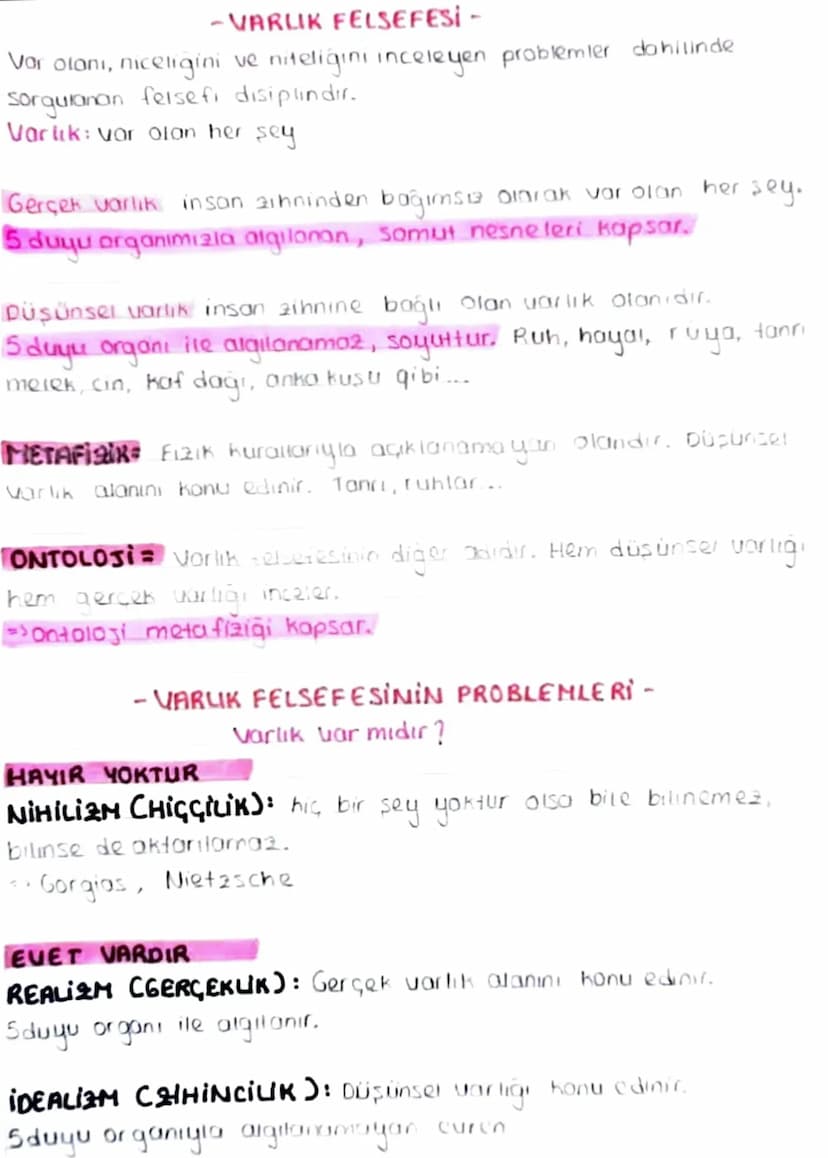 - VARLIK FELSEFESİ -
Var olanı, niceliğini ve niteliğini inceleyen problemler dahilinde
sorgulanan felsefi disiplindir.
Varlık: var olan her şey
Gerçek varlık insan zihninden bağımsız olarak var olan her şey.
5 duyu organımızla algılanan, somut nesneleri kapsar.
Düşünsel varlık insan zihnine bağlı olan varlık olanıdır.
5 duyu organı ile algılanamaz, soyuttur. Ruh, hayal, rüya, tanrı
melek, cin, kaf dağı, anka kuşu gibi...
METAFİZİK= Fizik kurallarıyla açıklanamayan olandır. Düşünsel
varlık alanını konu edinir. Tanrı, ruhlar...
ONTOLOJİ= Varlık felsefesinin diğer adıdır. Hem düşünsel varlığı
hem gerçek varlığı inceler.
=> Ontoloji metafiziği kapsar.
- VARLIK FELSEFESİNİN PROBLEMLERİ -
Varlık var mıdır?
HAYIR YOKTUR
NİHİLİZM (HİÇÇİLİK): hiç bir şey yoktur olsa bile bilinemez,
bilinse de aktarılamaz.
Gorgias, Nietzsche
EVET VARDIR
REALİZM (GERÇEKLİK): Gerçek varlık alanını konu edinir.
5 duyu organı ile algılanır.
İDEALİZM (ZİHİNCİLİK): Düşünsel varlığı konu edinir.
5 duyu organıyla algılanamayan